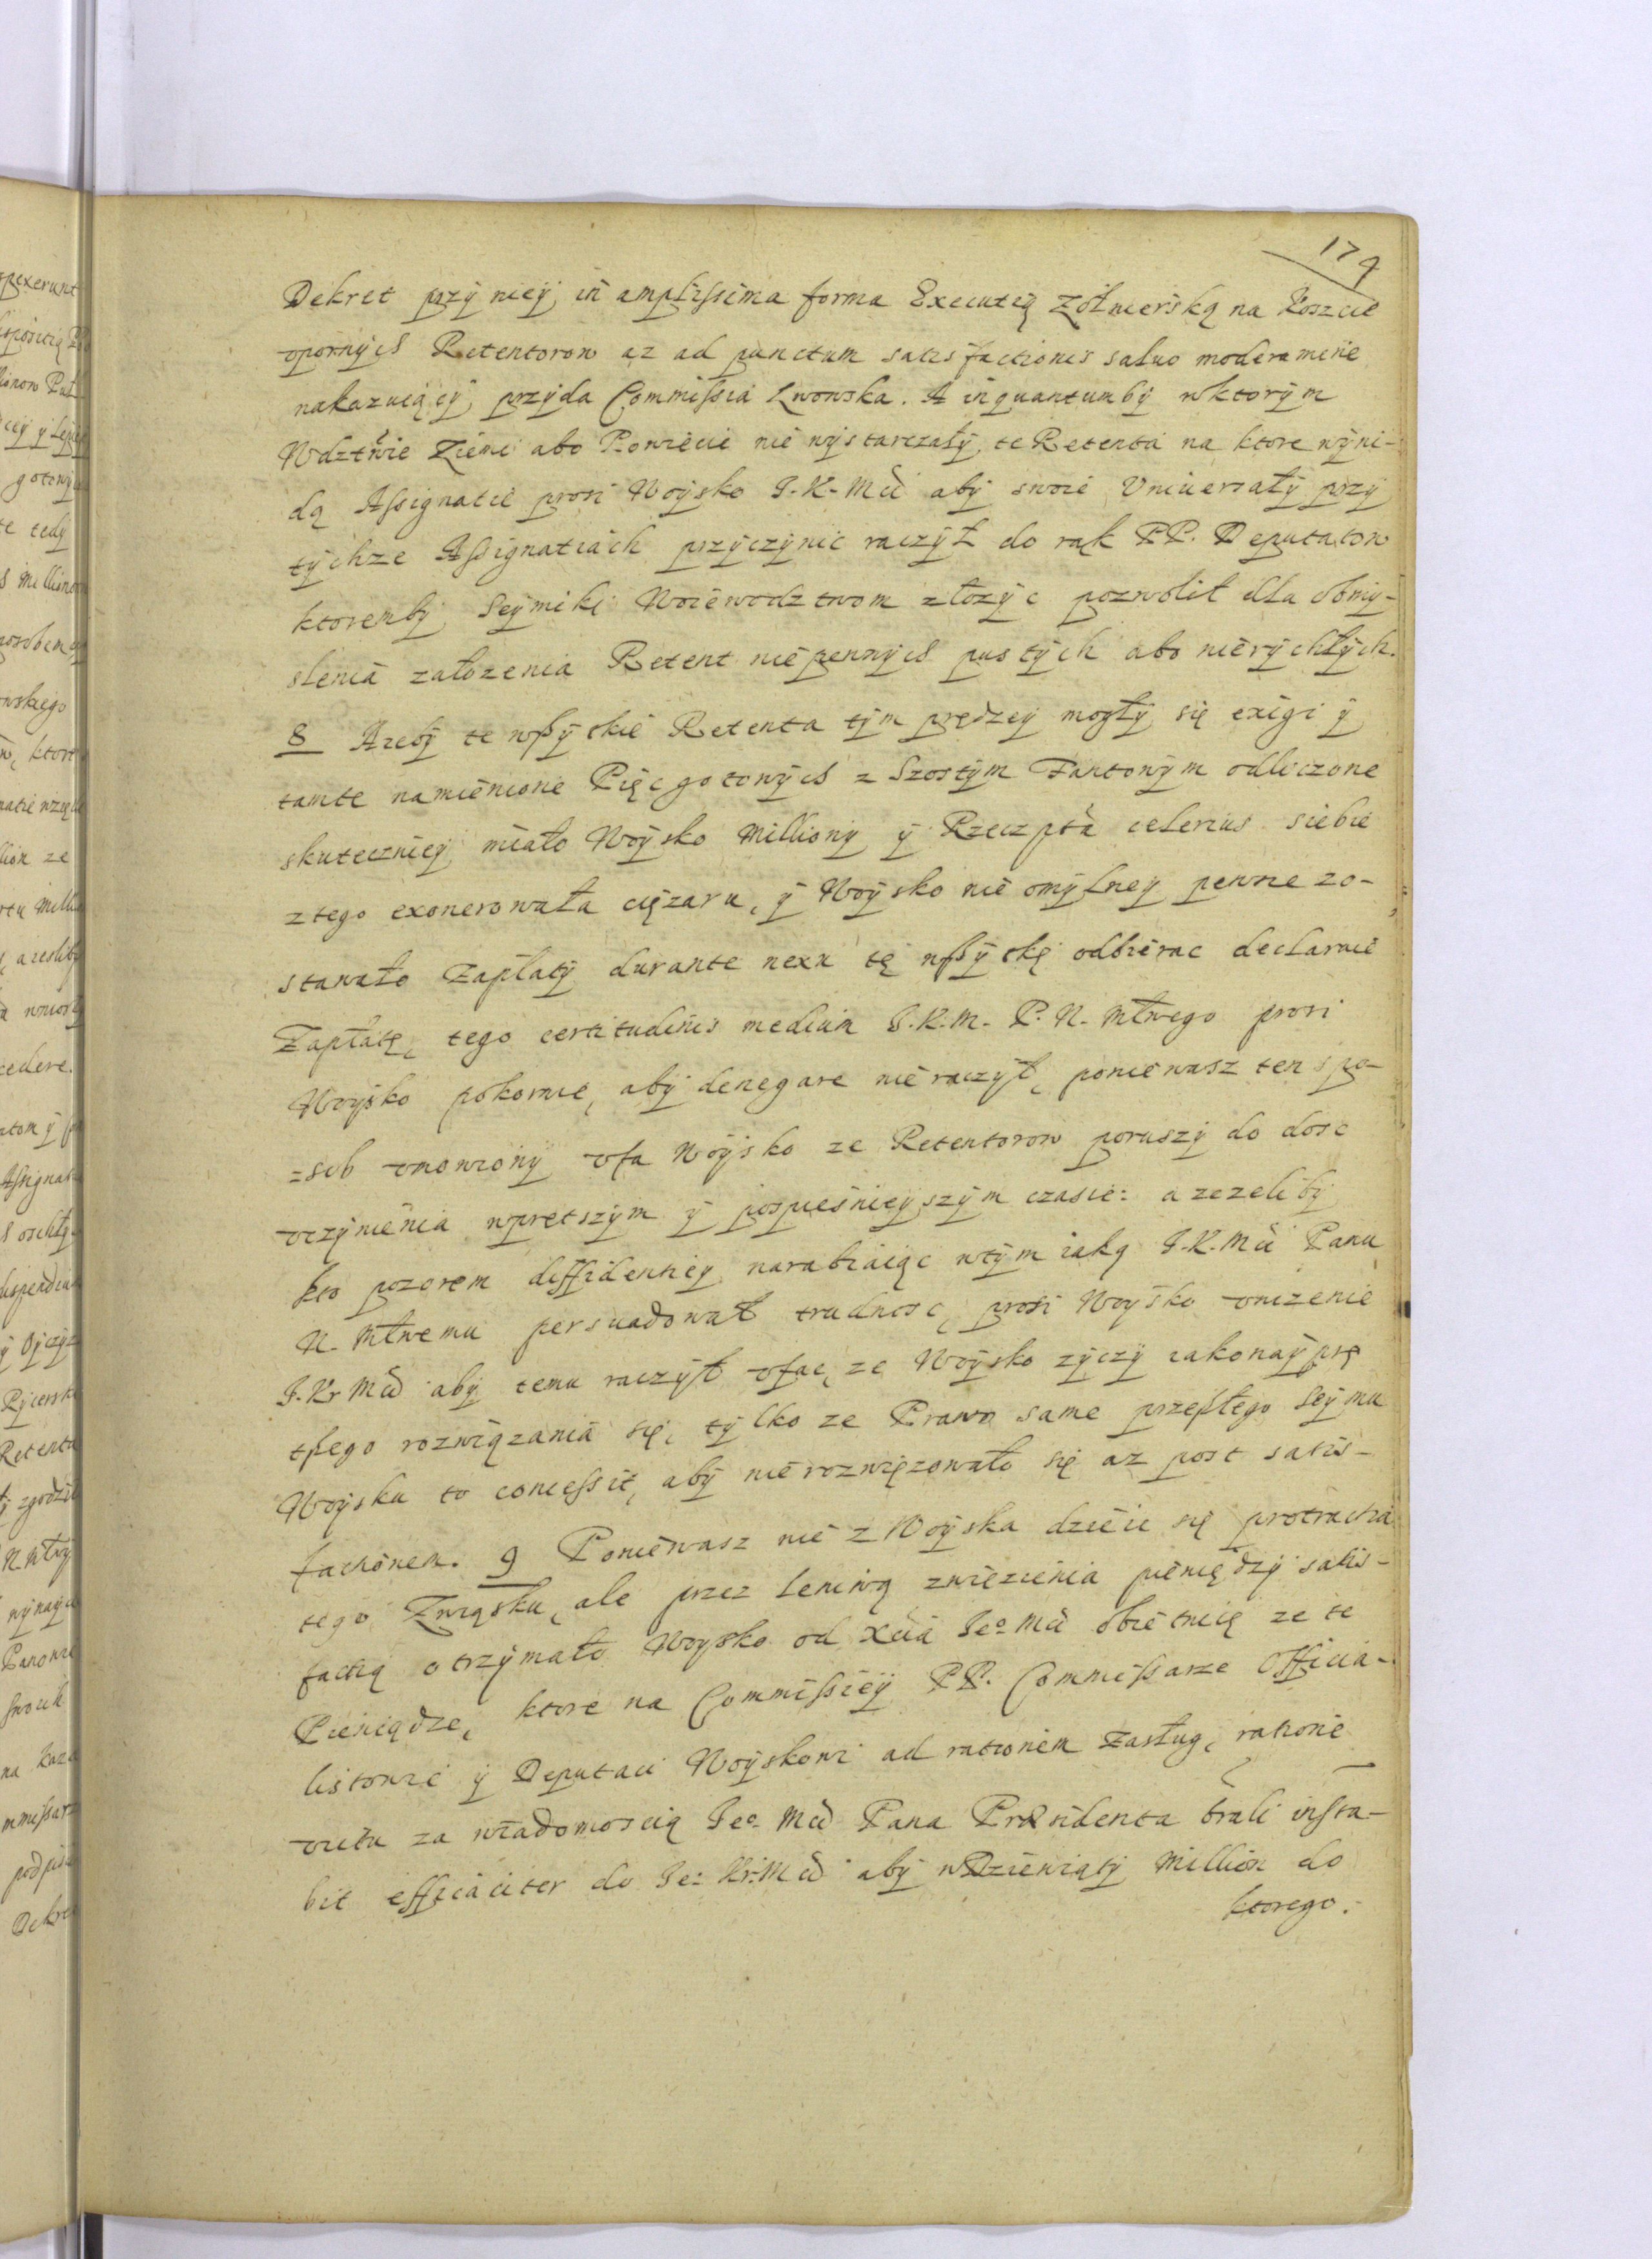 174
Dekret przÿ nieÿ in amplissima forma Executią Zołnierską na koszcie
vpornÿch Retentorow az ad punctum satisfactionis saluo moderamine
nakazuiącÿ przÿda Commissia Lwowska. A inquantumbÿ wktorÿm
Wdztwie Ziemi abo Powiecie nie wÿstarczałÿ te Retenta na ktore wÿni-
dą Assignatie prosi Woÿsko J.K.Mci abÿ swoie Vniuersałÿ przÿ
tÿchze Assignatiach przÿczÿnic raczÿł do rąk PP. Deputatow
ktorembÿ Seÿmiki Woiewodztwom złozÿc pozwolił dla obmÿ-
slenia załozenia Retent niepewnÿch pustÿch abo nierÿchłÿch.
8 Azebÿ te wszÿtkie Retenta tÿm prędzeÿ mogłÿ się exigi ÿ
tamte namienione Pięc gotowÿch z Szostÿm Fantowÿm odliczone
skutecznieÿ miało Woÿsko Millionÿ ÿ Rzeczpta celerius siebie
z tego exonerowała cięzaru, ÿ Woÿsko nie omÿlneÿ pewne zo-
stawało Zapłatÿ durante nexu tę wszÿtkę odbierac declaruie
Zapłatę, tego certitudinis medium J.K.M. P.N. Młwego prosi
Woÿsko pokornie, abÿ denegare nie raczÿł, poniewasz ten spo-
=sob vmowionÿ vfa Woÿsko ze Retentorow poruszÿ do dosc
vczÿnienia wprętszÿm ÿ pospiesnieÿszÿm czasie: a zezelibÿ
kto pozorem diffidentieÿ narabiaiąc wtÿm iaką J.K.Mci Panu
N. Młwemu persuadował trudnosc, prosi Woÿsko vnizenie
J.Kr Mci abÿ temu raczÿł vfac, ze Woÿsko zÿczÿ iakonaÿprę
tszego rozwiązania się, tÿlko ze Prawo same przeszłego Seÿmu
Woÿsku to concessit, abÿ nierozwięzowało się az post satis-
factionem. 9 Poniewasz nie z Woÿska dzieie się protractia
tego Zwiąsku, ale przez leniwą zwiezienia pieniędzÿ satis-
factią otrzÿmało Woÿsko od Xcia Jeo Mci obietnicę ze te
Pieniądze, ktore na Commissieÿ PP. Commissarze Officia-
listowie ÿ Deputaci Woÿskowi ad rationem Zasług, ratione
victu za wiadomoscią Jeo Mci Pana Præsidenta brali insta-
bit efficaciter do Jeo Kr:Mci abÿ wDziewiątÿ Million do
ktorego.